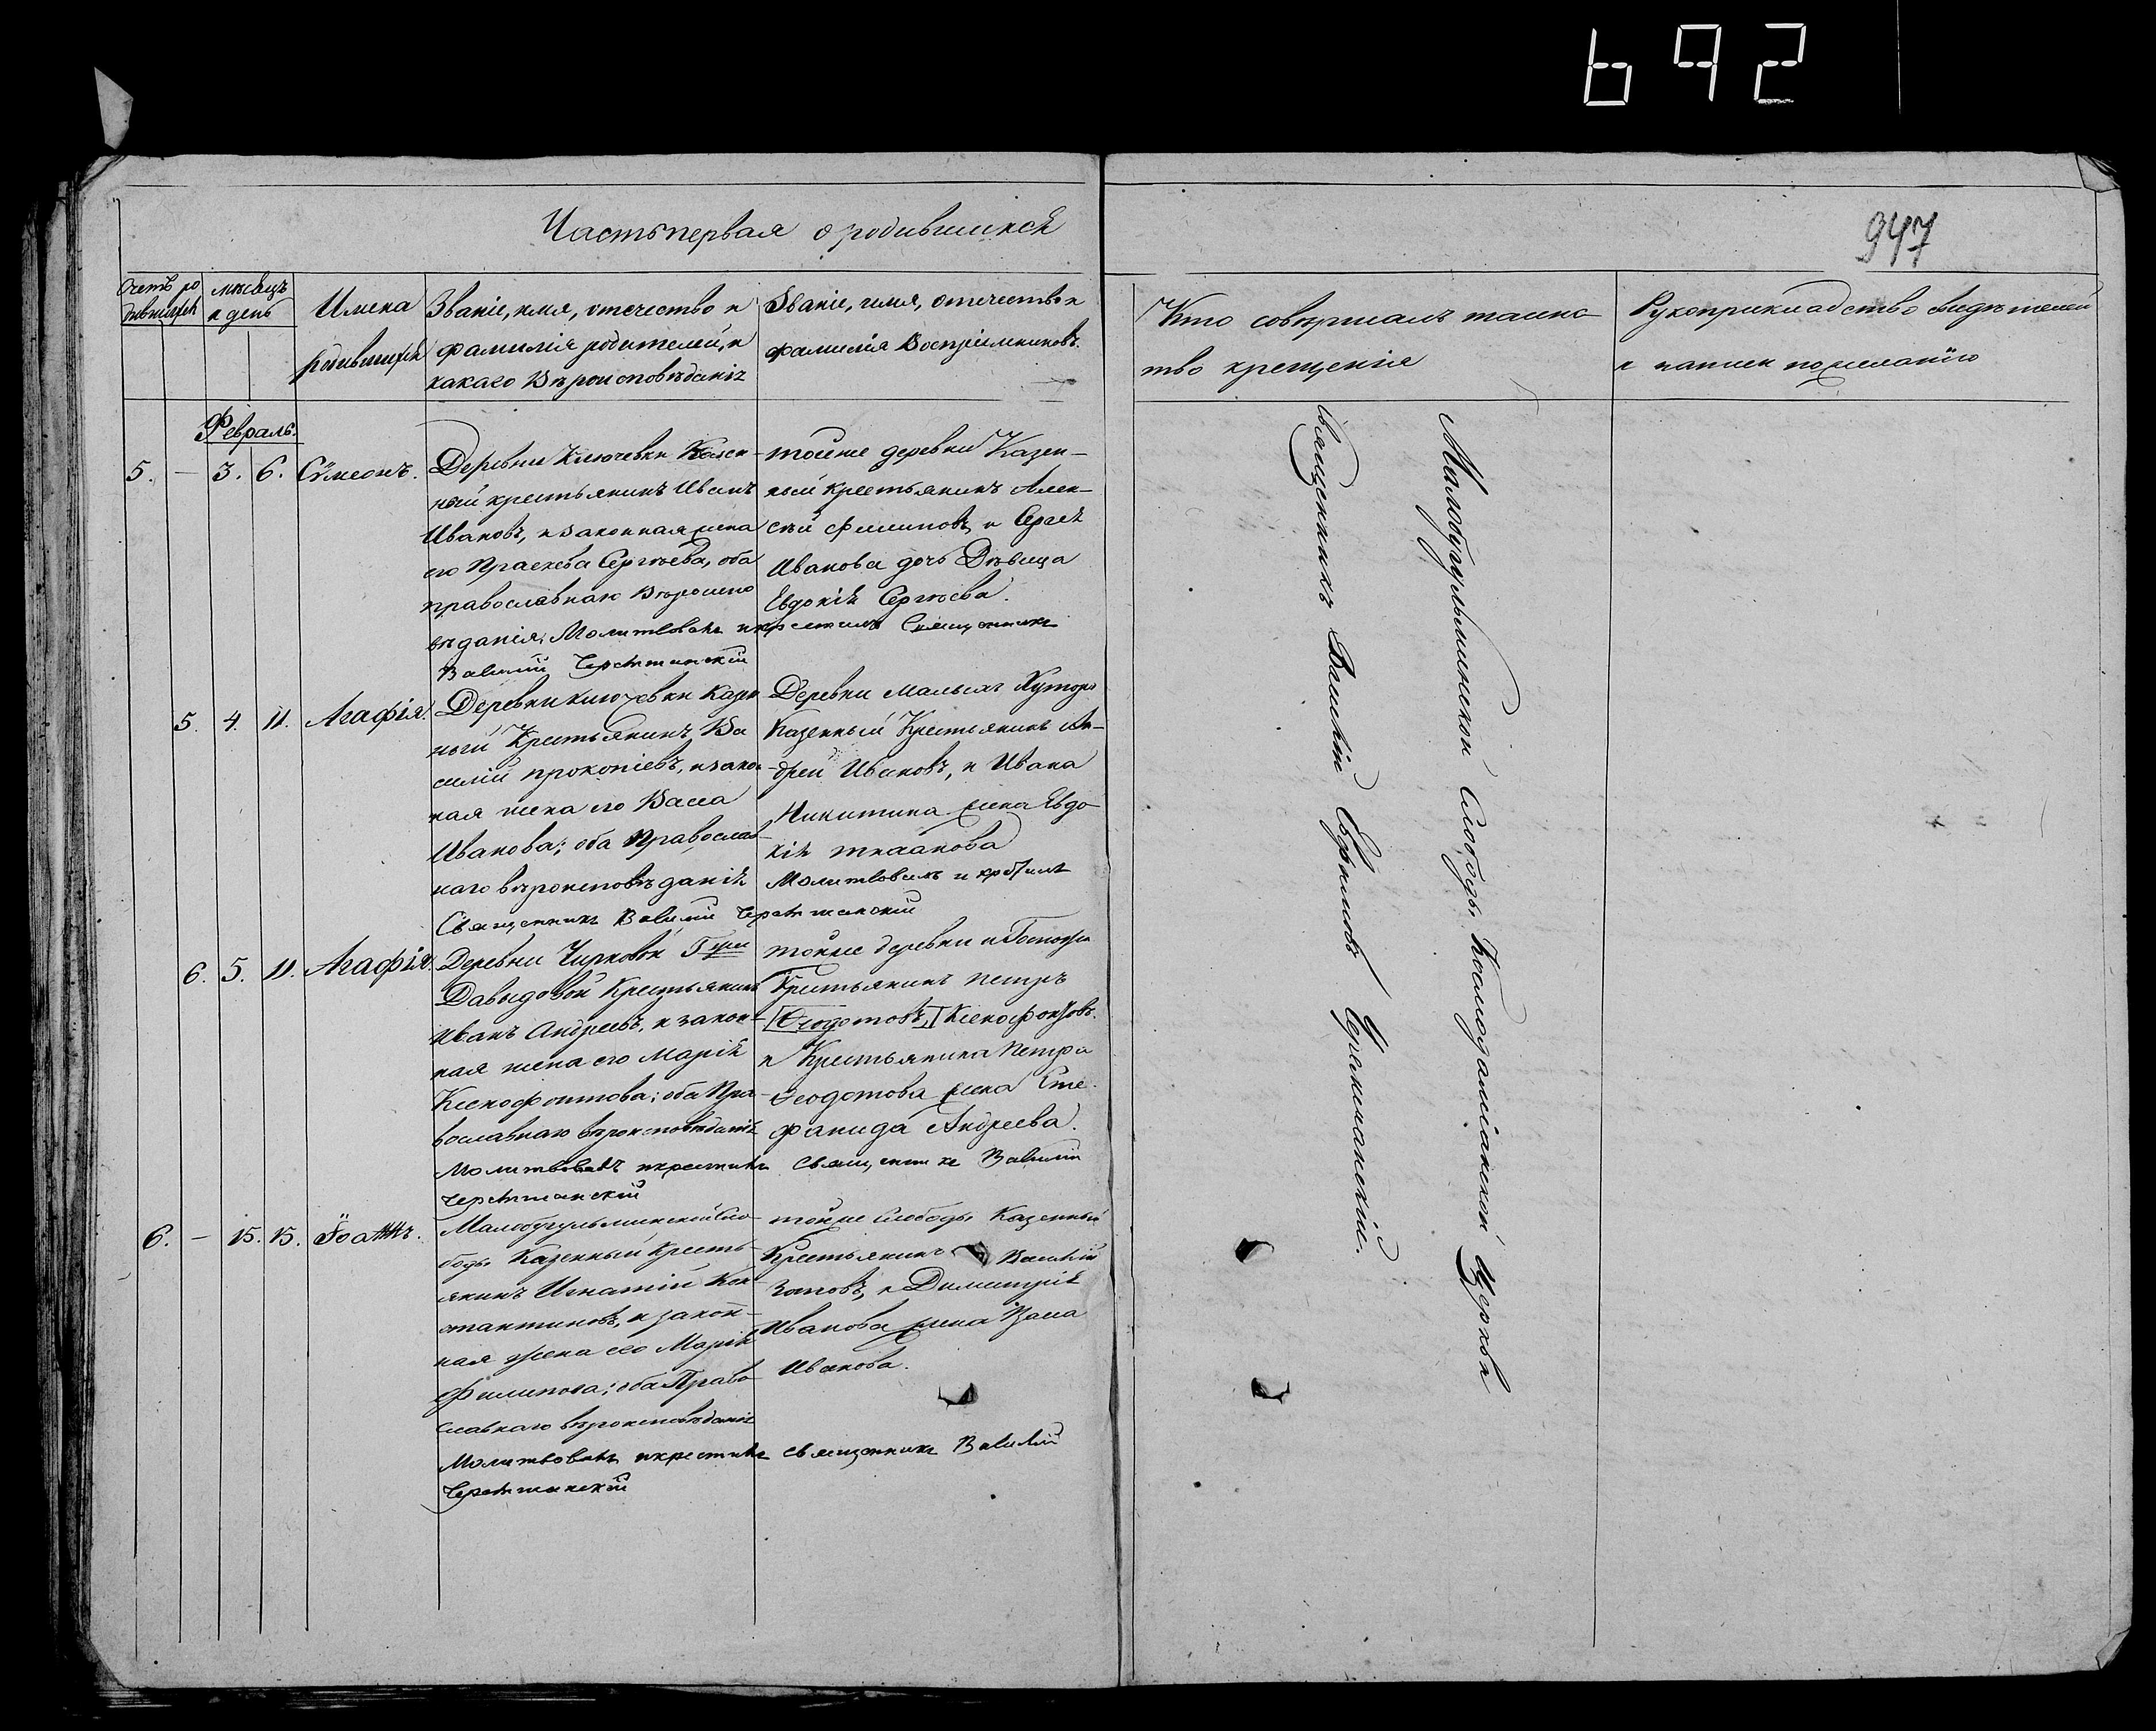 692
947
Часть первая о родившихся
Счетъ ро
дившихся
мѣсяцъ
и день
Имена
родившихся
Званіе, имя, отечество и
фамилія родителей, и
какаго Вѣроисповѣданія
Званіе, имя, отечество и
фамилія Воспріимниковъ.
Кто совершалъ таинс
тво крещенія
Рукоприкладство свидѣтелей
о записи по желанію
Февраль.
5. — 3. 6. Сѵмеонъ.
Деревни Ключевки Казен
ный крестьянинъ Иванъ
Ивановъ, и законная жена
его Праскева Сергѣева, оба
православнаго Вѣроиспо
вѣданія. Молитвовалъ и крестилъ Священникъ
Василій
тойже деревни Казен—
ный Крестьянинъ Алек—
сѣй Филиповъ, и Сергея
Иванова дочь Дѣвица
Евдокія Сергѣева.
5. 4. 11. Агафія.
Деревни Ключевки Казен
ный Крестьянинъ Ва
силій Прокопіевъ, и закон
ная жена его Васса
Иванова; оба Православ
наго вѣроисповѣданія
Священникъ Василій
Деревни Малыхъ Хуторъ
Казенный Крестьянинъ Ан—
дрей Ивановъ, и Ивана
Никитина жена Евдо—
кія
Молитвовалъ и крестилъ
6. 5. 11. Агафія.
Деревни Чирковой Г-жи
Давыдовой Крестьянинъ
Иванъ Андреевъ, и закон—
ная жена его Марія
Ксенофонтова; оба Пра—
вославнаго вѣроисповѣданія
Молитвовалъ и крестилъ Священникъ Василій
тойже деревни и Госпожи
Крестьянинъ Петръ
Ѳеодотовъ, Ксенофонтовъ.
и Крестьянина Петра
Ѳеодотова жена Сте
фанида Андреева.
6. — 15. 15. Іоаннъ.
Малобугульминской Сло
боды Казенный Кресть—
янинъ Игнатій Кон—
стантиновъ, и закон—
ная жена его Марія
Филипова; оба Право
славнаго вѣроисповѣданія
Молитвовалъ и крестилъ Священникъ Василій
тойже Слободы Казенный
Крестьянинъ Василій
и Димитрія
Иванова жена Васса
Иванова.
Малобугульминской Слободы, Космодаміанской Церкви
Священникъ Василій Ефимовъ